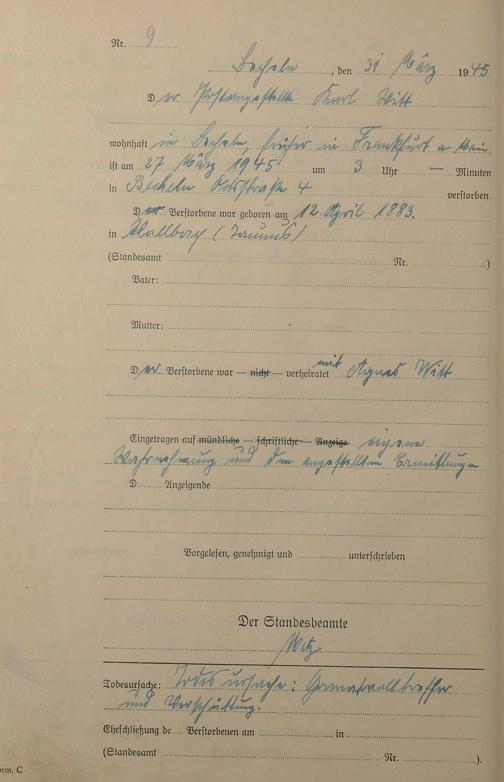 Nr. 9
Becheln, den 31 März 1945
Der Postangestellte Karl Witt
wohnhaft in Becheln, früher in Frankfurt a Main
ist am 27 März 1945 um 3 Uhr — Minuten
in Becheln Ortsstraße 4 verstorben.
Der Verstorbene war geboren am 12. April 1883.
in Wallbach (Taunus)
(Standesamt Nr. )
Vater:
Mutter:
Der Verstorbene war — nicht — verheiratet mit Agnes Witt
Eingetragen auf mündliche — schriftliche — Anzeige eigene
Wahrnehmung und den angestellten Ermittlungen
D Anzeigende
Vorgelesen, genehmigt und unterschrieben
Der Standesbeamte
Todesursache: Todesursache: Granatvolltreffer
und Verschüttung.
Eheschließung de Verstorbenen am in
(Standesamt Nr. ).
orm. C